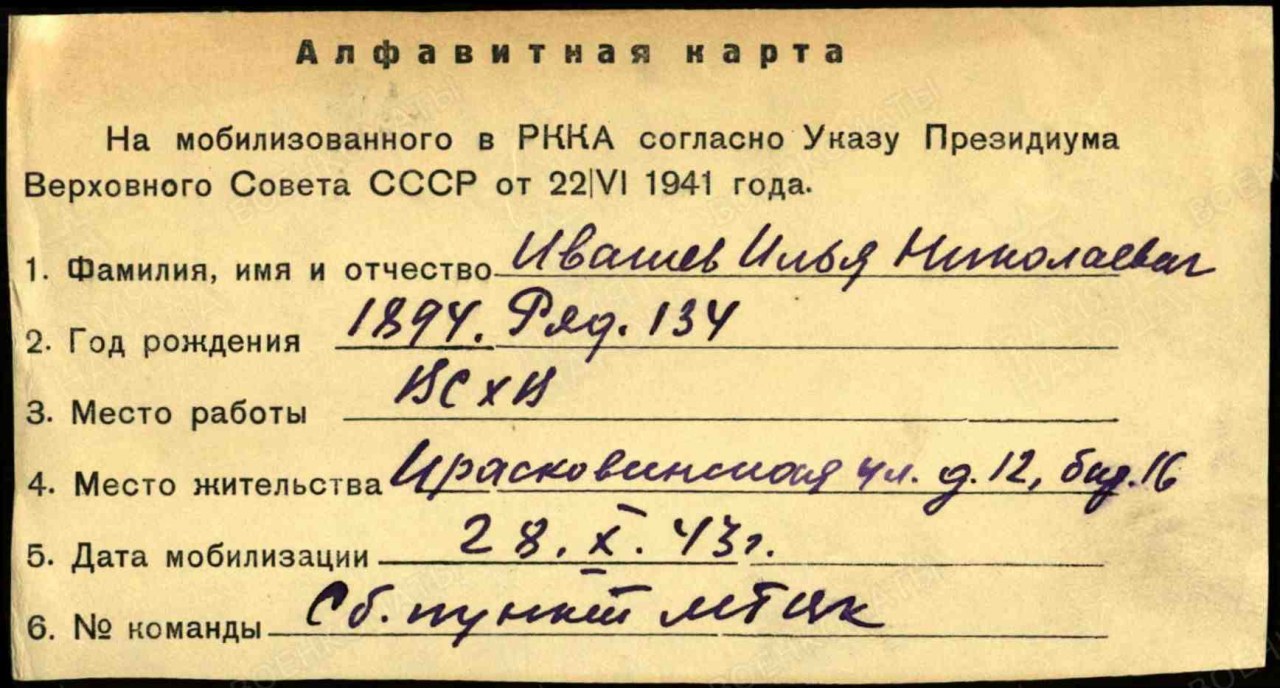 Алфавитная карта
На мобилизованного в РККА согласно Указу Президиума
Верховного Совета СССР от 22|VI 1941 года.
1. Фамилия, имя и отчество Ивашев Илья Николаевич
2. Год рождения 1894. Ряд. 134
3. Место работы ВСХВ
4. Место жительства ул. д. 12, 16
5. Дата мобилизации 28. X. 43 г.
6. № команды Сб. пункт